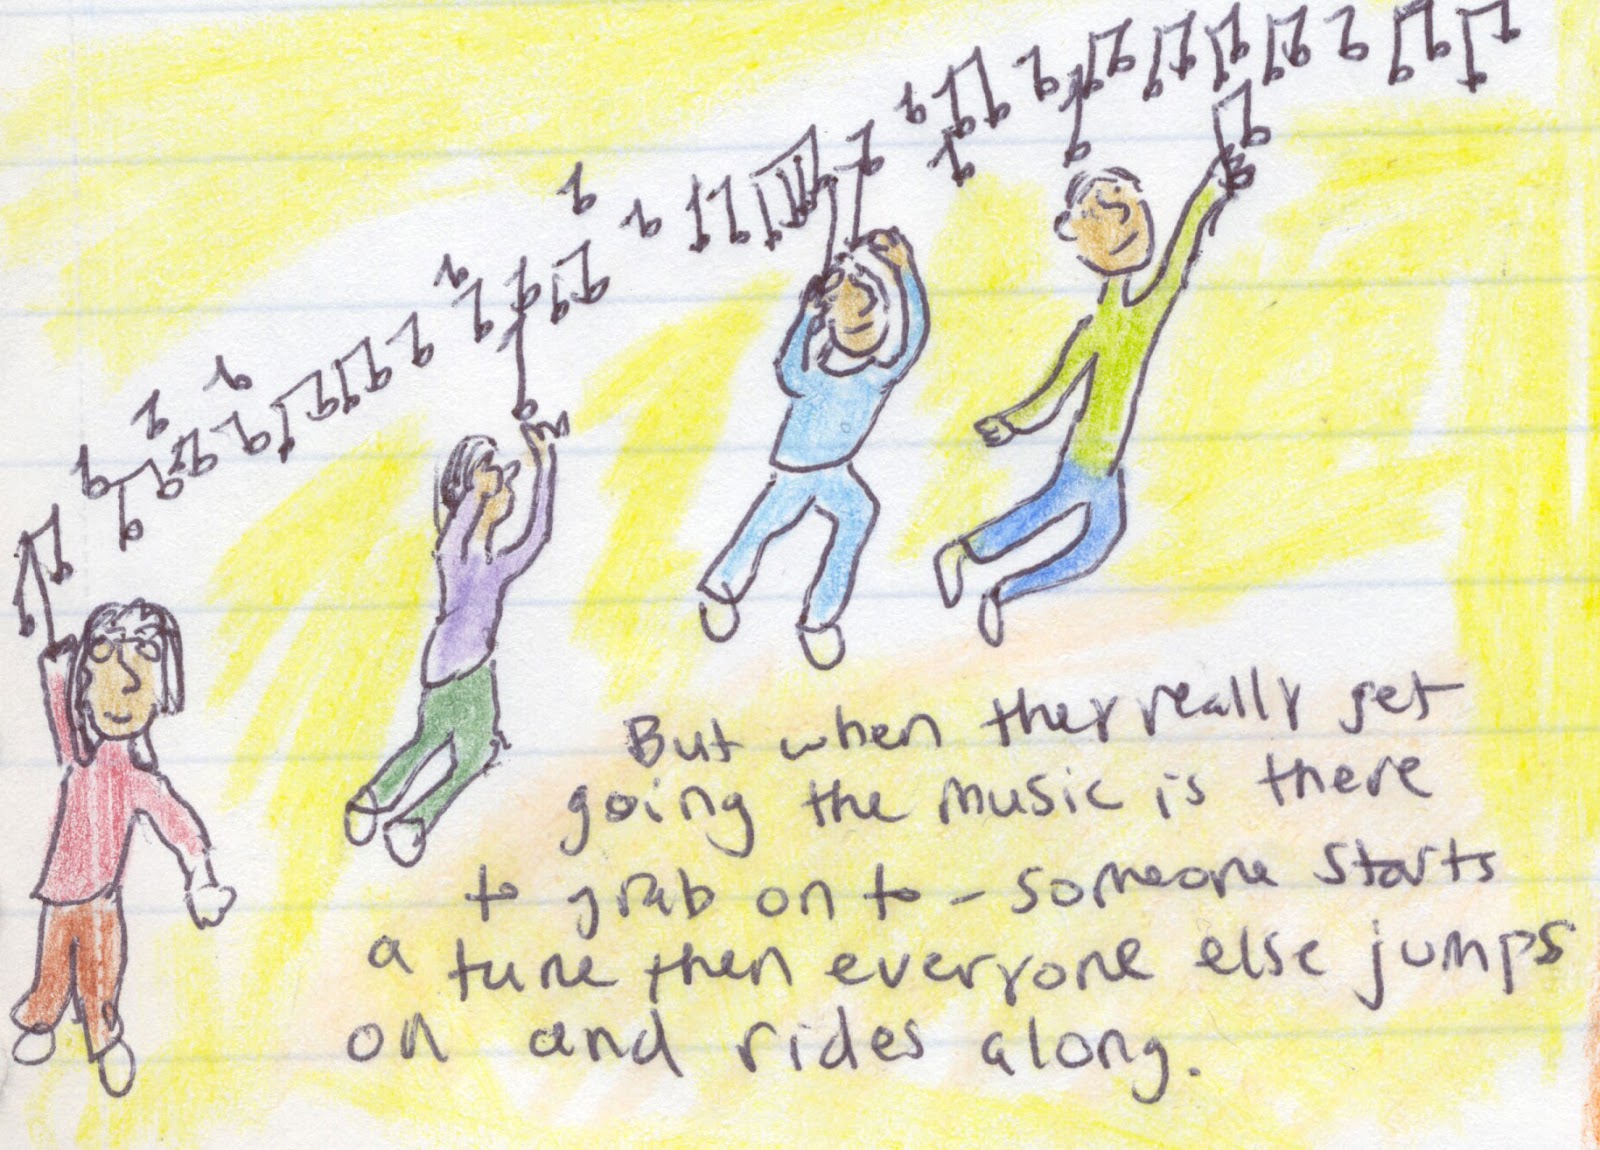 But when they really get
going the music is there
to grab on to - someone starts
a tune then everyone else jumps
on and rides along.